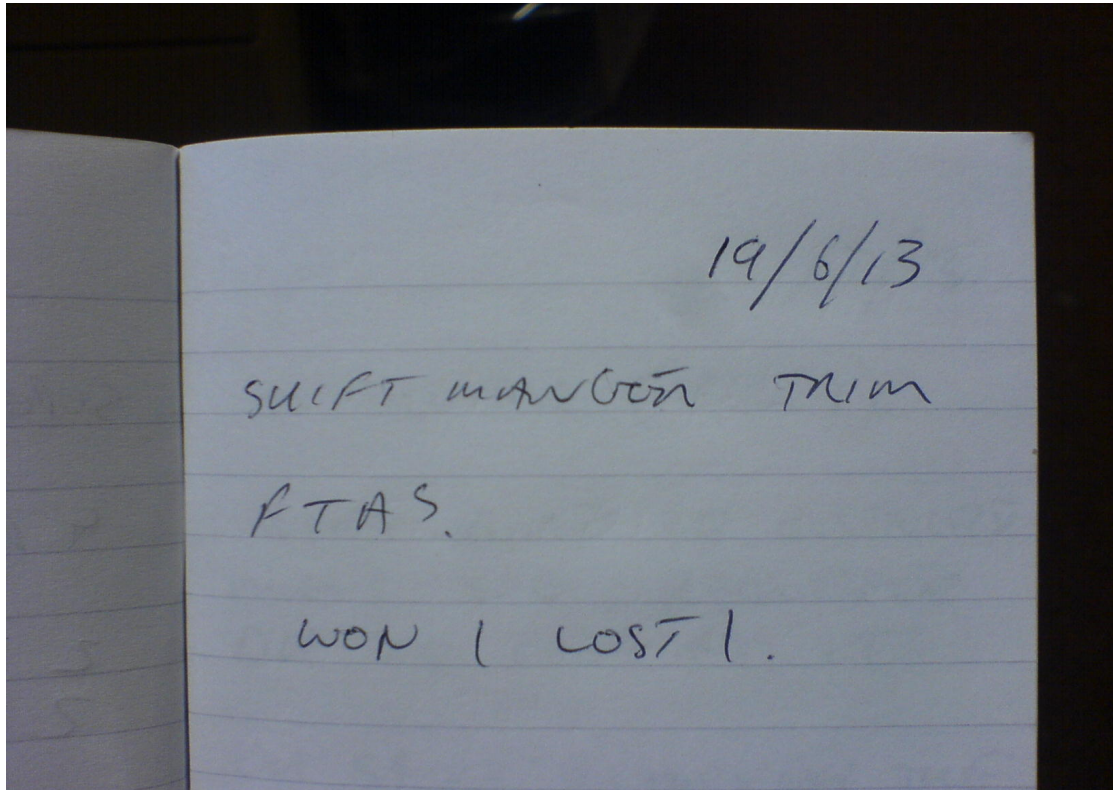 19/6/13
SHIFT MANGER TRIM
FTAS.
WON 1 LOST 1.